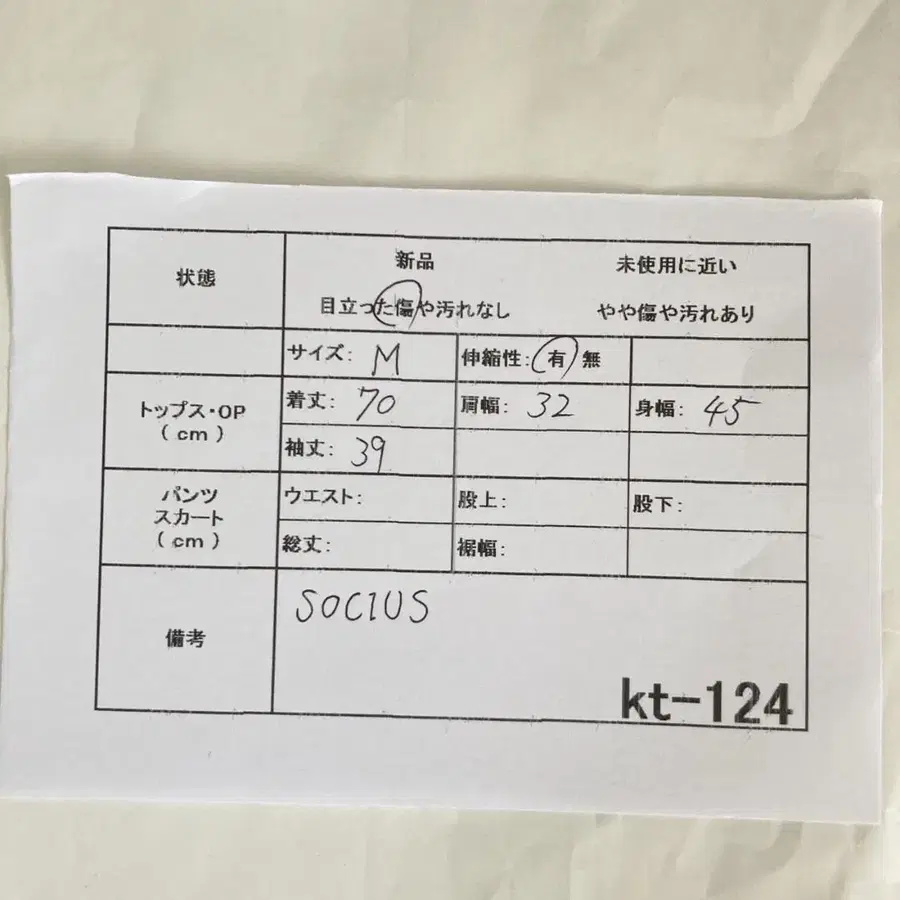 状態
新品 未使用に近い
目立った傷や汚れなし やや傷や汚れあり
サイズ: M 伸縮性: 有 無
トップス・OP
(cm)
着丈: 70 肩幅: 32 身幅: 45
袖丈: 39
パンツ
スカート
(cm)
ウエスト: 股上: 股下:
総丈: 裾幅:
備考
SOCIUS
kt-124